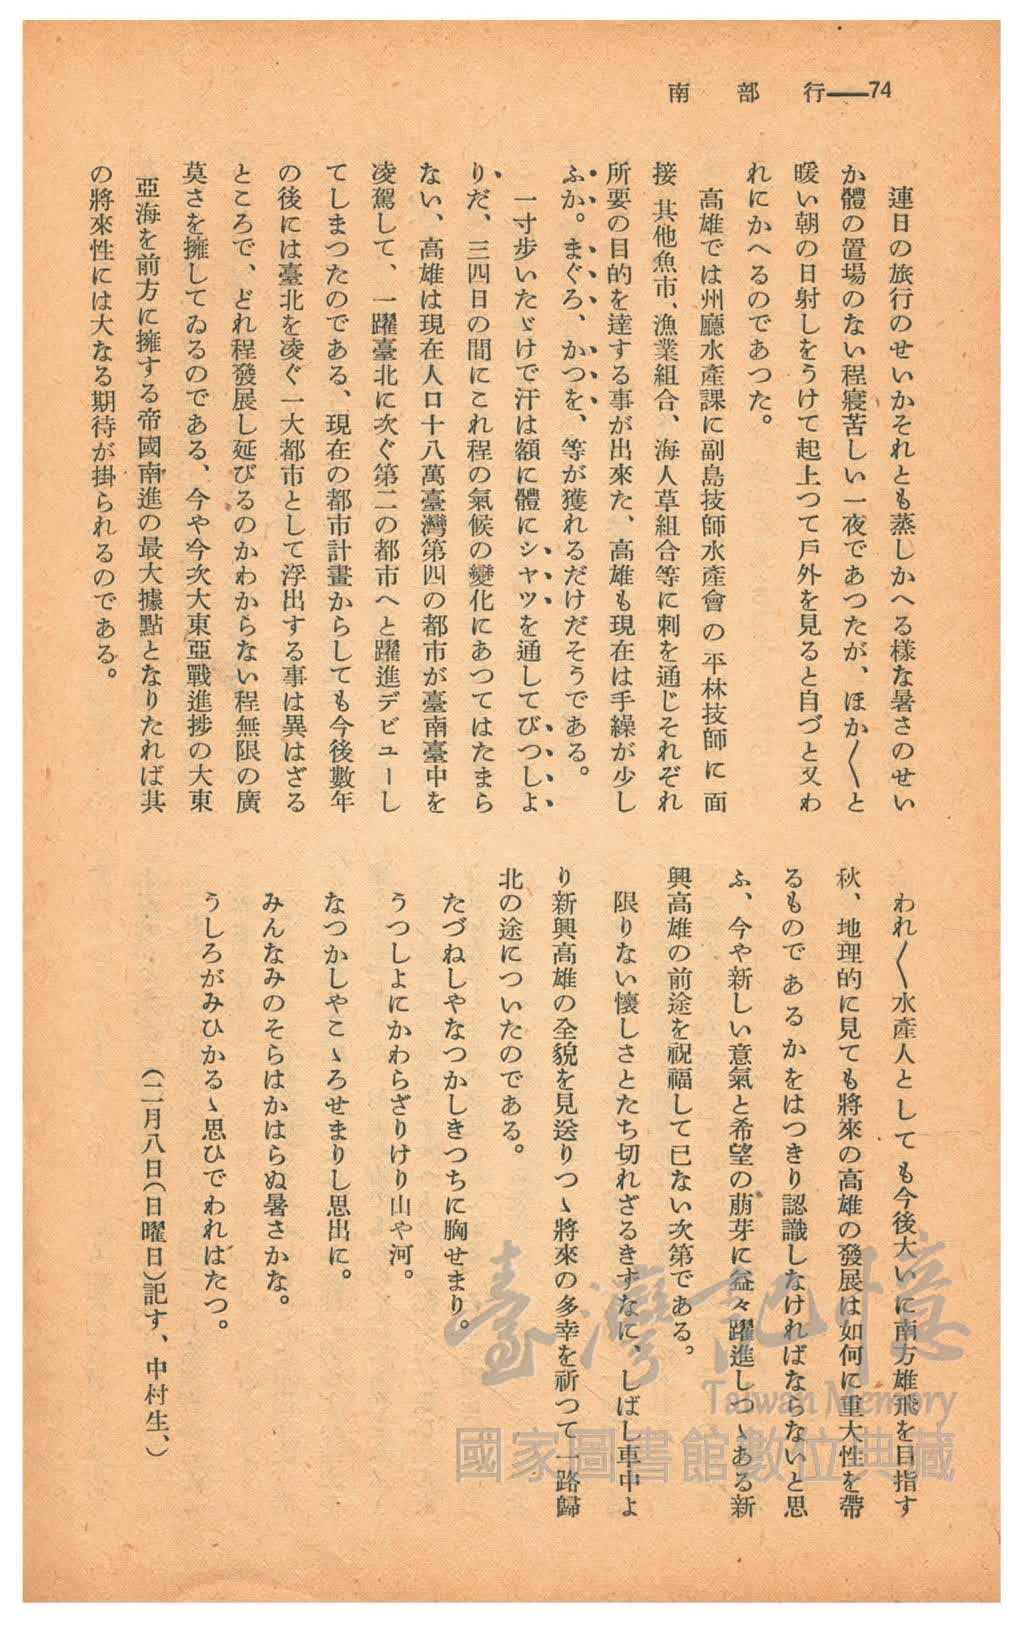 南部行――74
連日の旅行のせいかそれとも蒸しかへる様な暑さのせい
か體の置場のない程寝苦しい一夜であつたが、ほか〱と
暖い朝の日射しをうけて起上つて戸外を見ると自づと又わ
れにかへるのであつた。
高雄では州廳水產課に副島技師水產會の平林技師に面
接 其他魚市、漁業組合、海人草組合等に刺を通じそれぞれ
所要の目的を達する事が出來た、高雄も現在は手繰が少し
ふか。まぐろ、かつを、等が獲れるだけだそうである。
一寸歩いたゞけで汗は額に體にシャツを通してびつしよ
りだ、三四日の間にこれ程の氣候の變化にあつてはたまら
ない、高雄は現在人口十八萬臺灣第四の都市が臺南臺中を
凌駕して、一躍臺北に次ぐ第二の都市へと躍進デビューし
てしまつたのである、現在の都市計畫からしても今後數年
の後には臺北を凌ぐ一大都市として浮出する事は異はざる
ところで、どれ程發展し延びるのかわからない程無限の廣
莫さを擁してゐるのである、今や今次大東亞戰進捗の大東
亞海を前方に擁する帝國南進の最大據點となりたれば其
の將來性には大なる期待が掛られるのである。
われ〱水產人としても今後大いに南方雄飛を目指す
秋、地理的に見ても將來の高雄の發展は如何に重大性を帶
るものであるかをはつきり認識しなければならないと思
ふ、今や新しい意氣と希望の萠芽に益々躍進しつゝある新
興高雄の前途を祝福して已ない次第である。
限りない懷しさとたち切れざるきずなに、しばし車中よ
り新興高雄の全貌を見送りつゝ將來の多幸を祈つて一路歸
北の途についたのである。
たづねしやなつかしきつちに胸せまり。
うつしよにかわらざりけり山や河。
なつかしやこゝろせまりし思出に。
みんなみのそらはかはらぬ暑さかな。
うしろがみひかるゝ思ひでわれはたつ。
(二月八日(日曜日)記す、中村生、)
臺灣記憶
Taiwan Memory
國家圖書館數位典藏